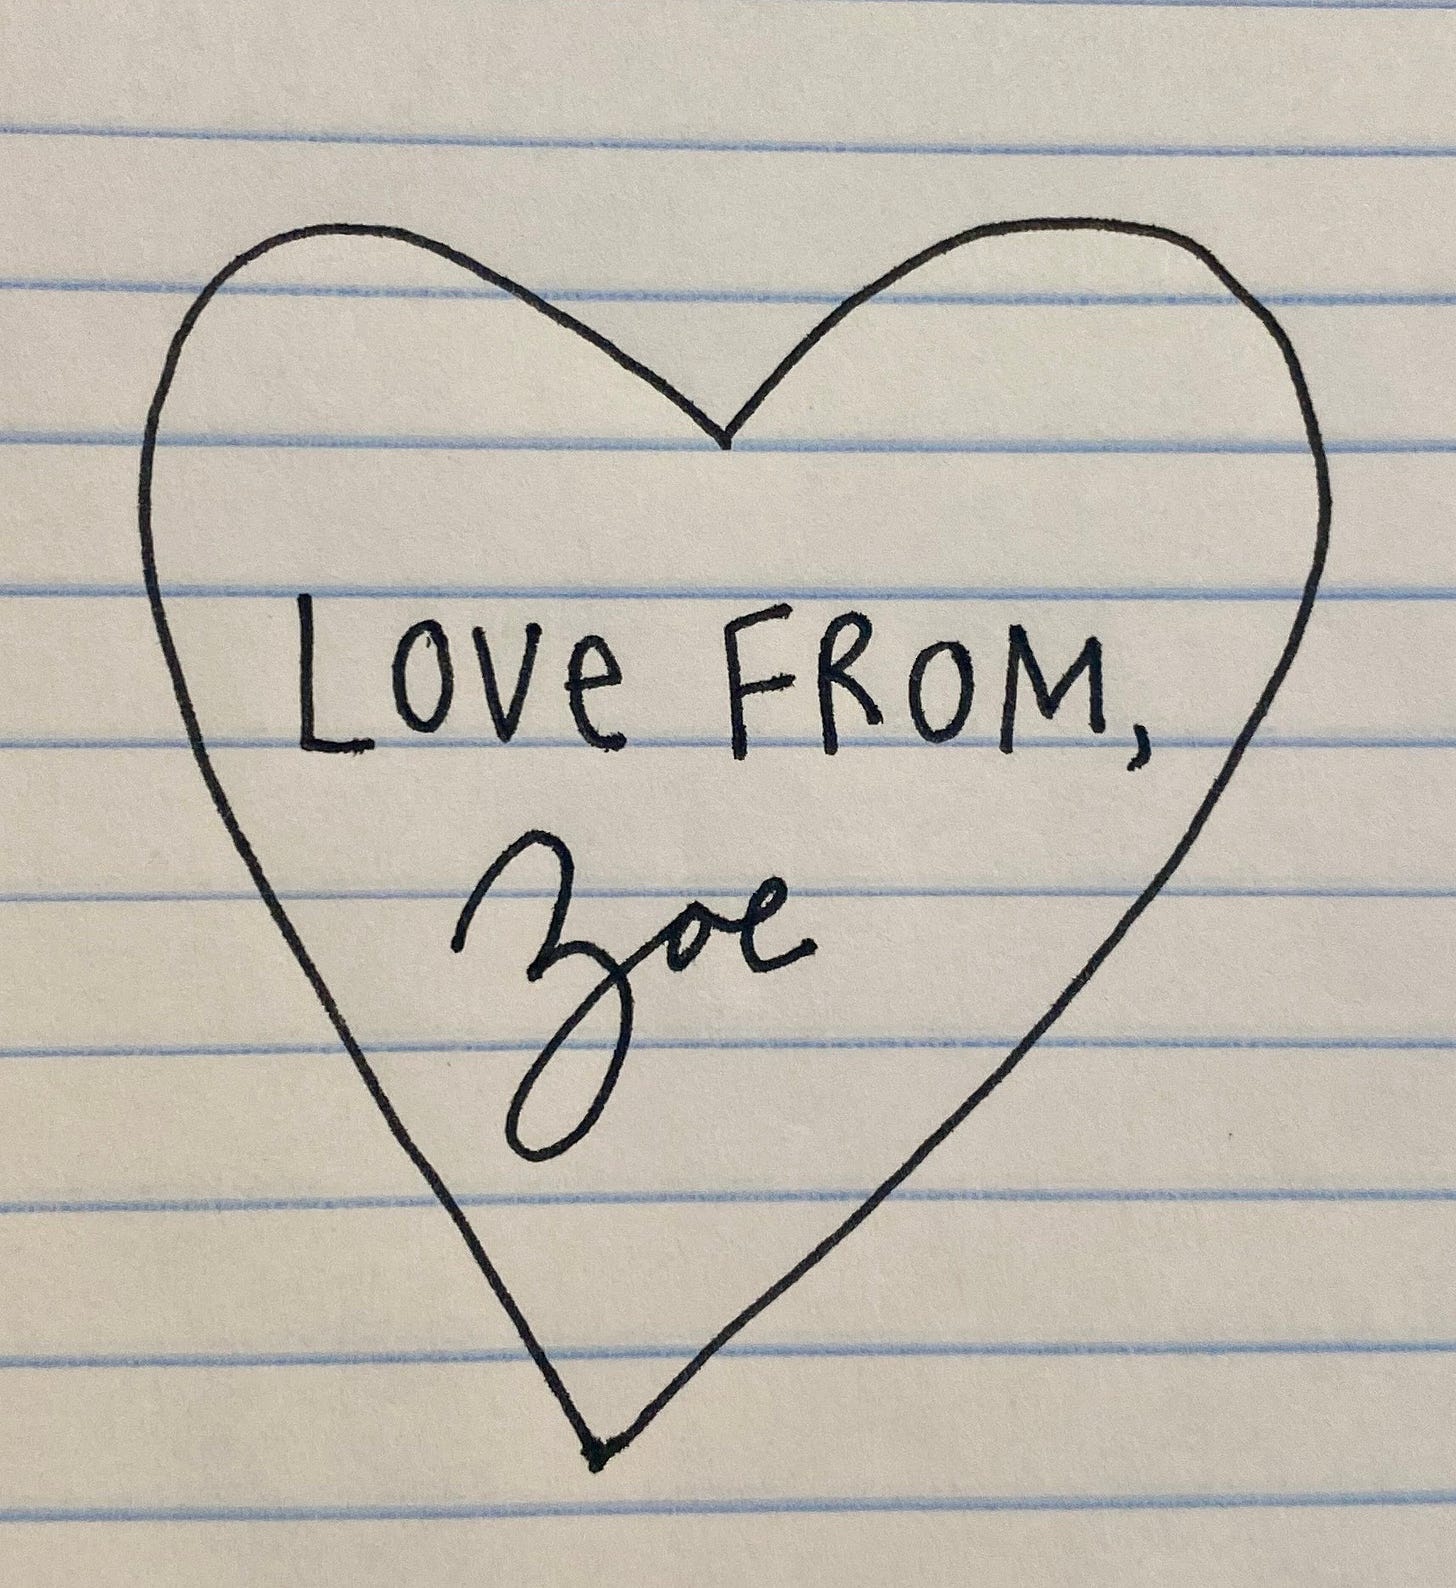 LOVe FROM,
Zoe